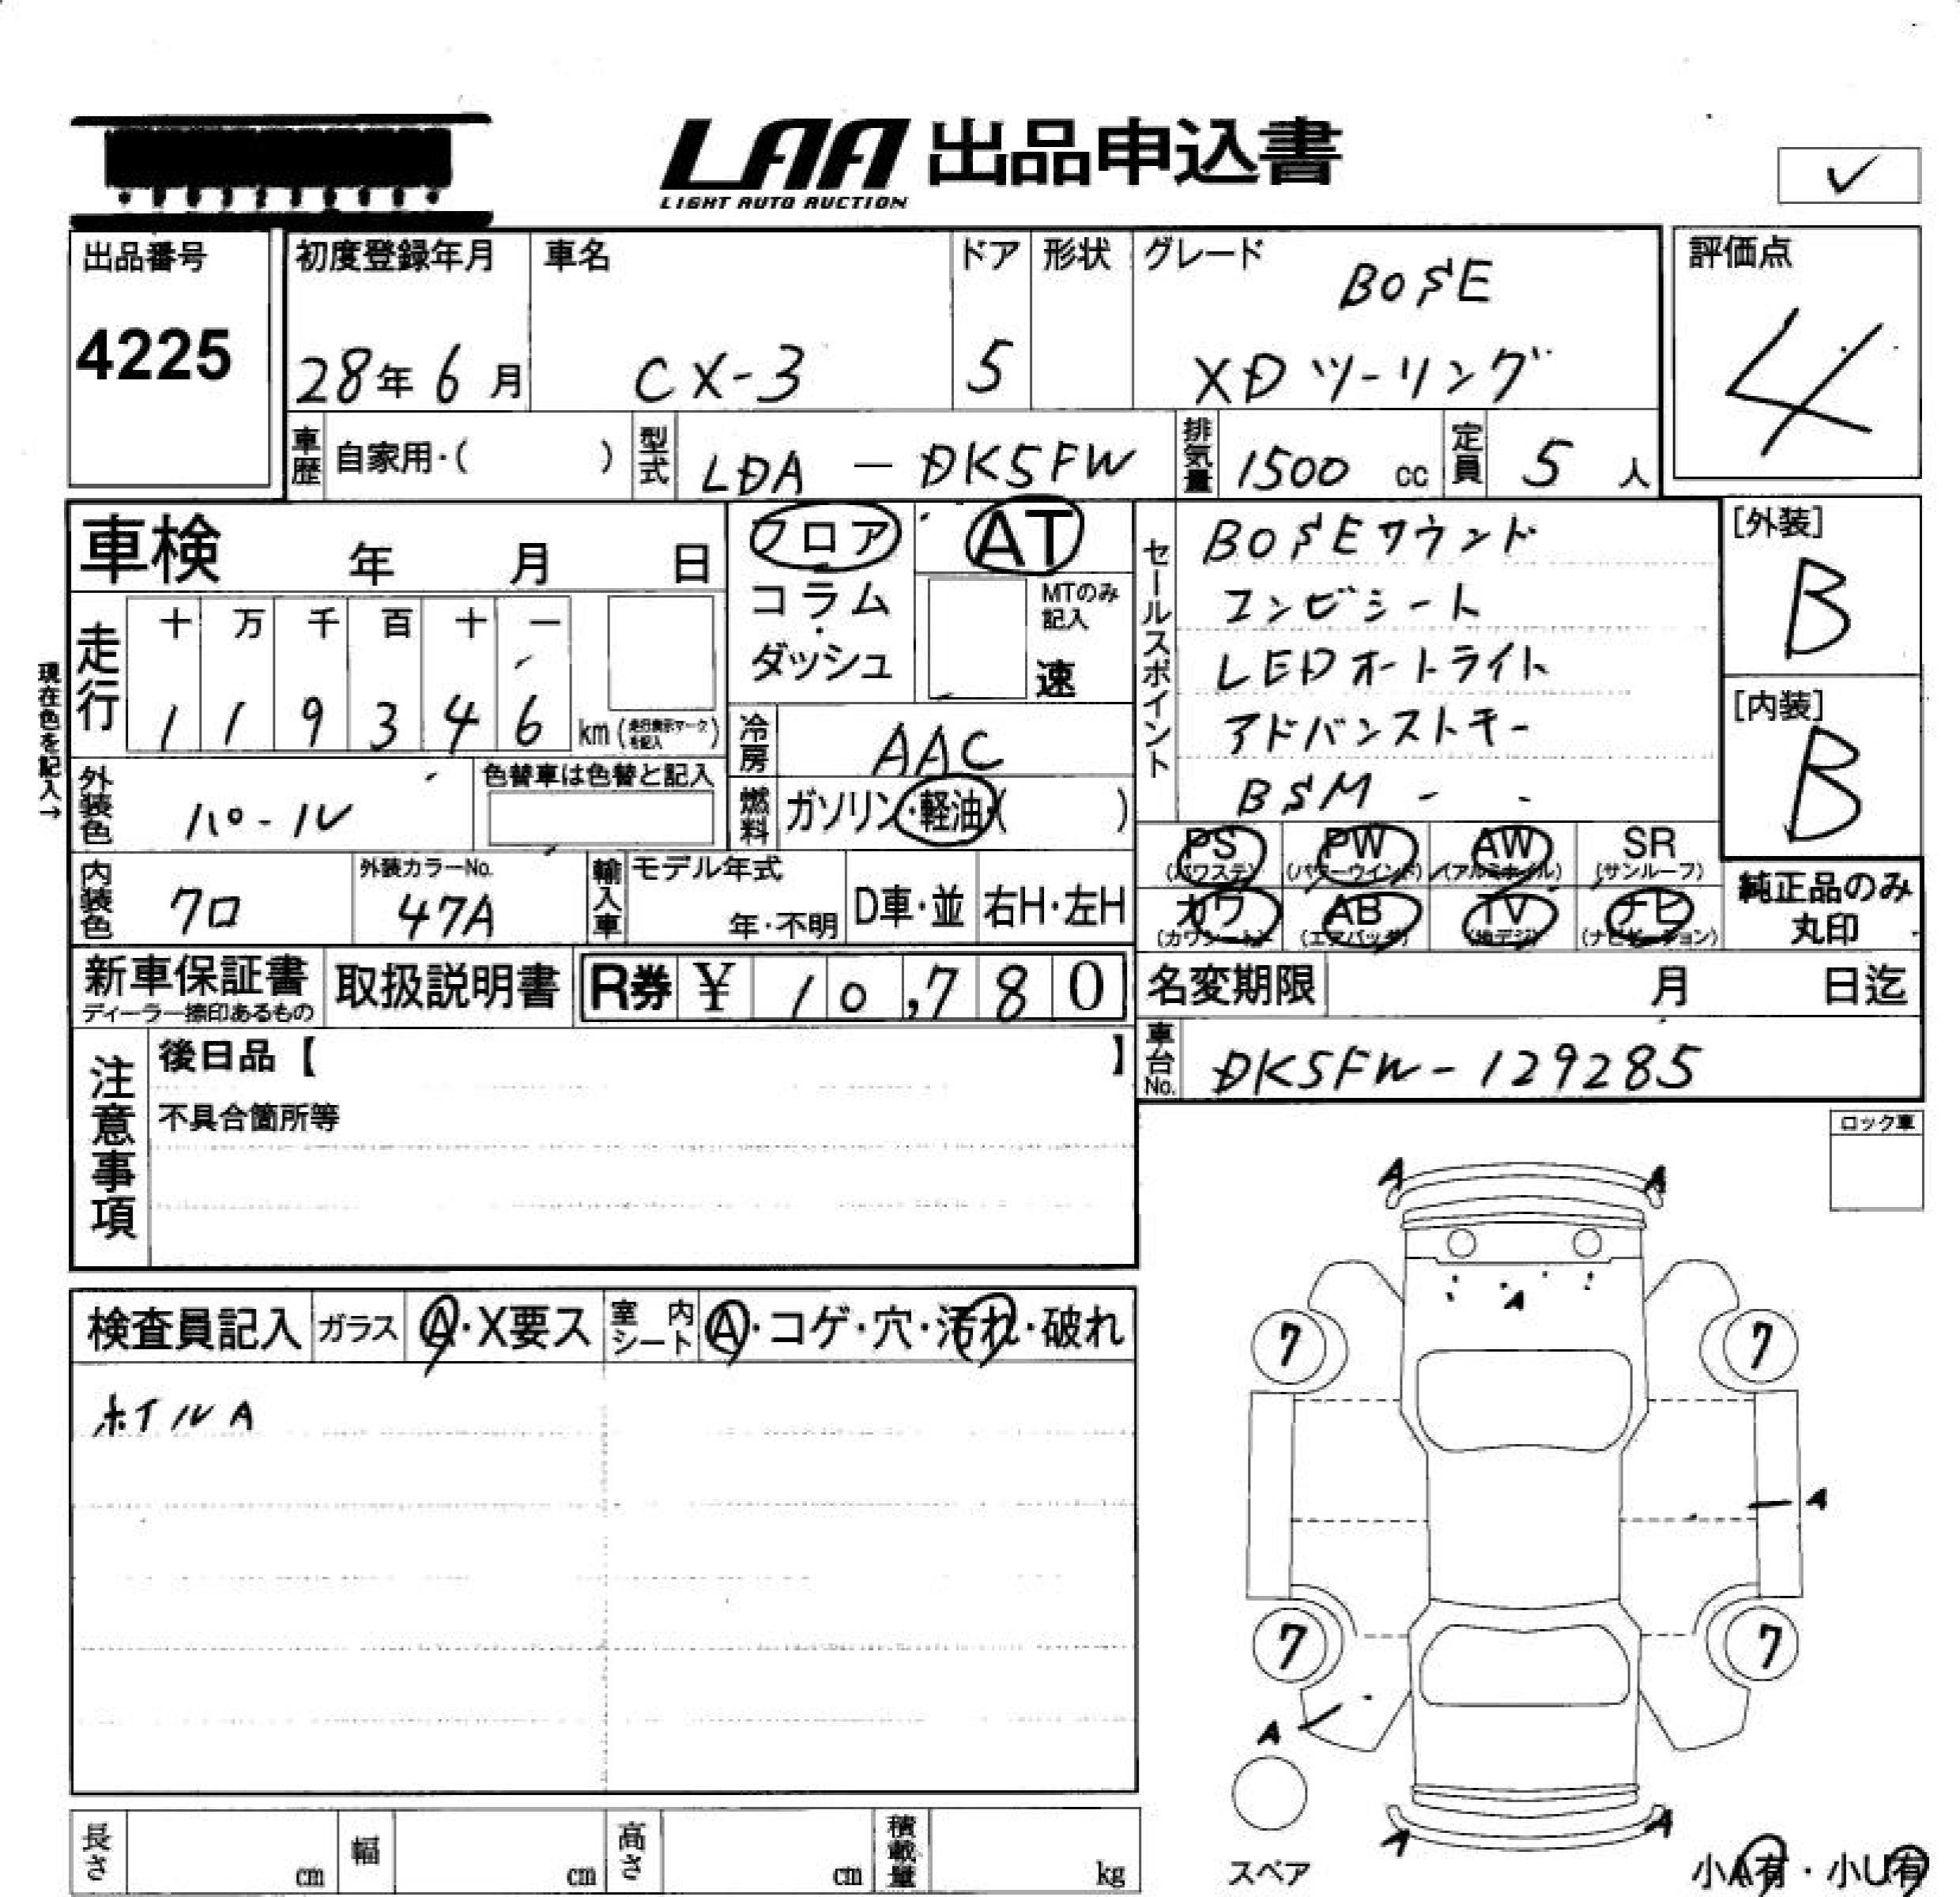 LAA 出品申込書
LIGHT AUTO AUCTION
✓
出品番号
4225
初度登録年月
28年 6月
車名
CX-3
ドア
5
形状
グレード
BOSE
XDツーリング
評価点
4
車歴 自家用・( )
型式 LDA - DK5FW
排気量 1500 cc
定員 5 人
車検 年 月 日
フロア
コラム
・
ダッシュ
AT
MTのみ
記入
速
セールスポイント
BOSEサウンド
コンビシート
LEDオートライト
アドバンストキー
BSM - -
[外装]
B
[内装]
B
現在色を記入→
走行
十 万 千 百 十 一
1 1 9 3 4 6
km (走行表示マークを記入)
冷房 AAC
燃料 ガソリン・軽油・( )
外装色 パール
色替車は色替と記入
内装色 クロ
外装カラーNo.
47A
輸入車
モデル年式
年・不明
D車・並
右H・左H
PS
(パワステ)
PW
(パワーウインド)
AW
(アルミホイル)
SR
(サンルーフ)
カワ
(カワシート)
AB
(エアバッグ)
TV
(地デジ)
ナビ
(ナビゲーション)
純正品のみ
丸印
新車保証書
ディーラー捺印あるもの
取扱説明書
R券 ¥ 10,780
名変期限 月 日迄
車台No. DK5FW-129285
注意事項
後日品【 】
不具合箇所等
ロック車
検査員記入
ガラス A・X要ス
室内シート A・コゲ・穴・汚れ・破れ
ホイルA
A A
A
7 7
A
7 7
A
A A
スペア
小A有・小U有
長さ cm
幅 cm
高さ cm
積載量 kg